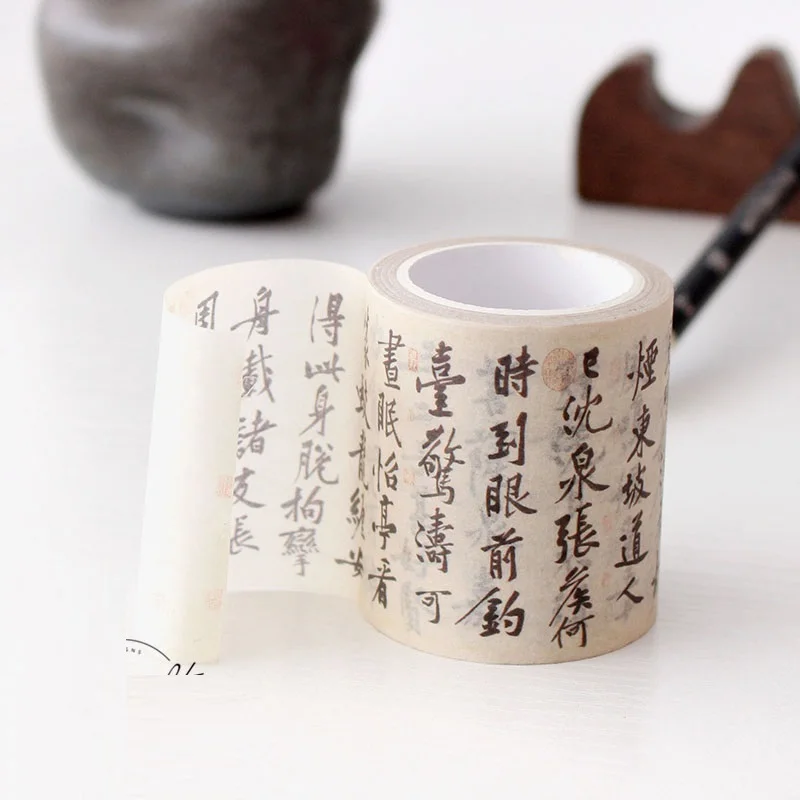 煙東坡道人
已沈泉張矦何
時到眼前釣
臺驚濤可
晝眠怡亭看
蛟龍纏安
得此身脫拘攣
舟載諸友長
周